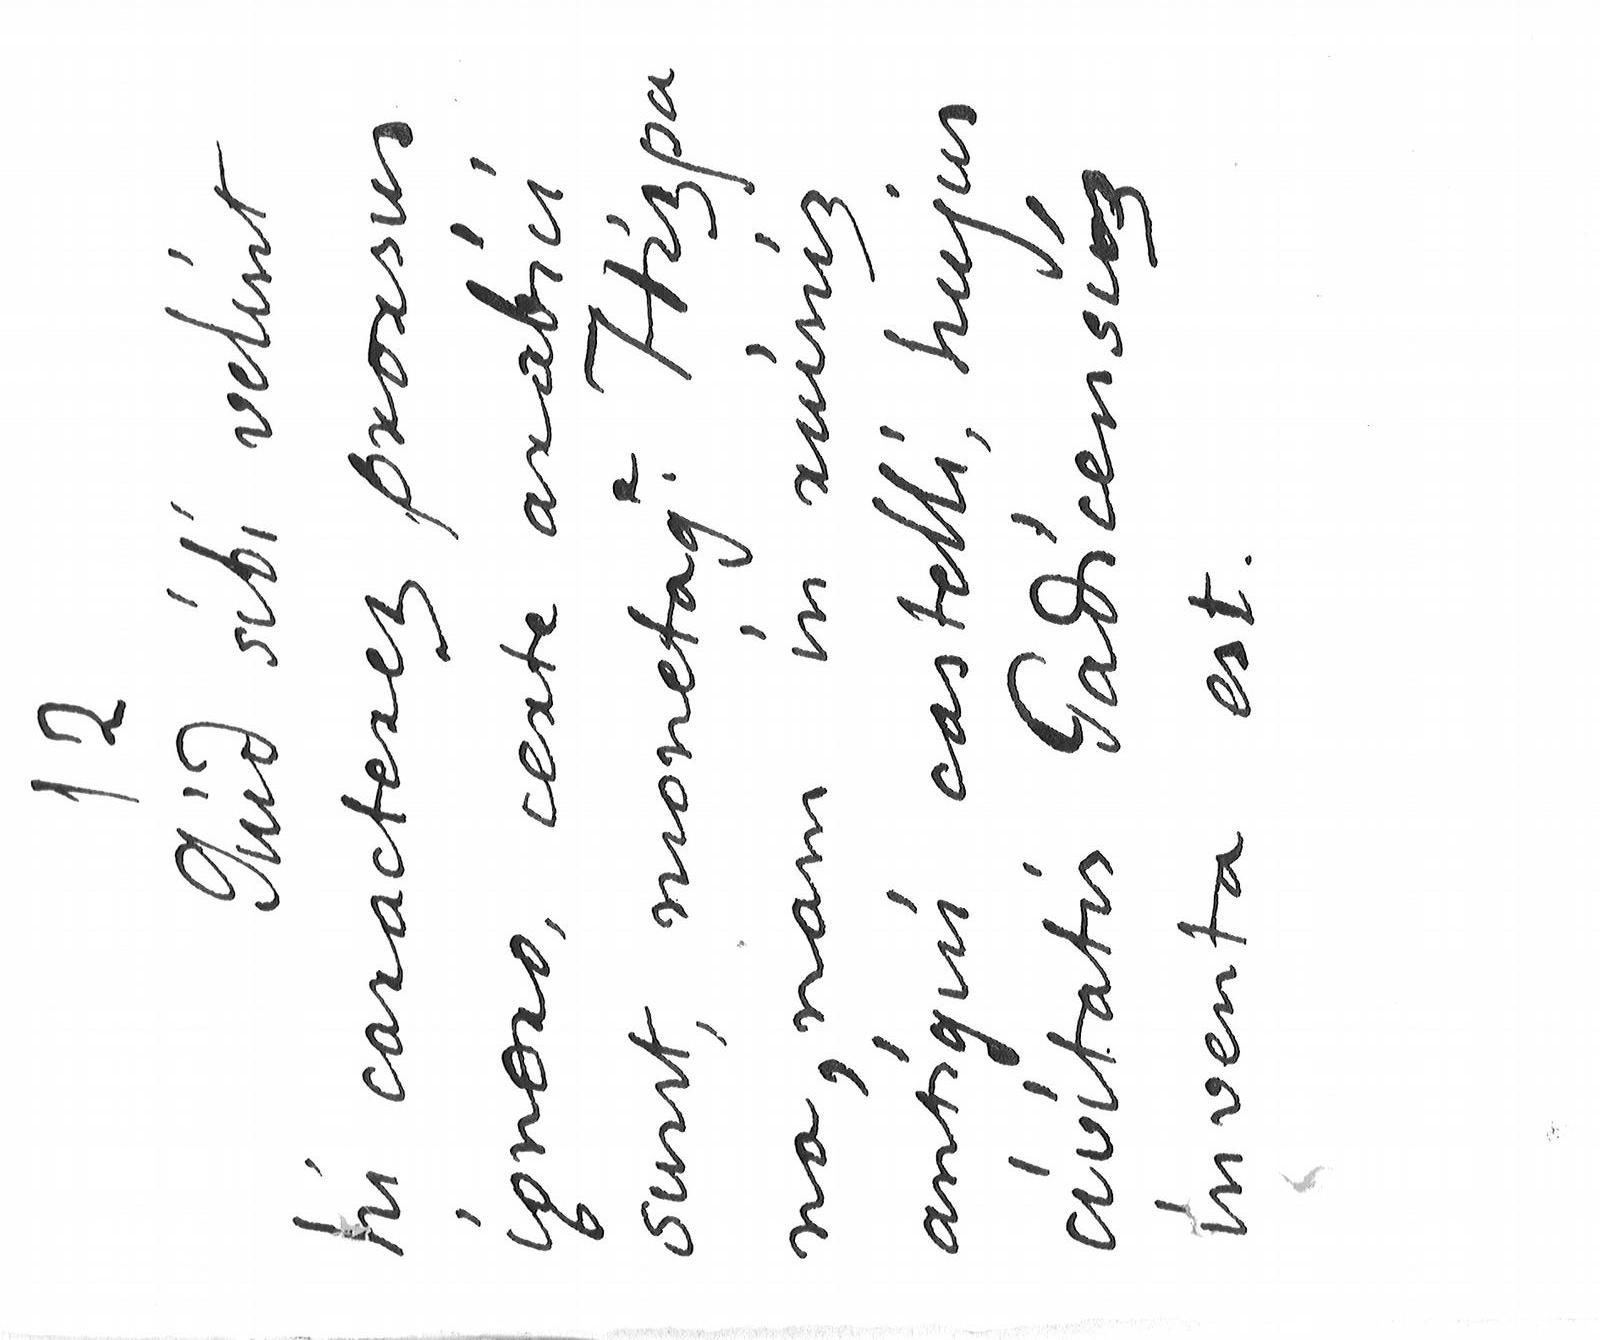 12
Quid sibi velint
hi caracterez prorsus
ignoro, certe arabici
sunt, monetaq. e Hizpa
na, nam in ruiniz
antiqui castelli, hujus
civitatis Gadicensiuz
inventa est.